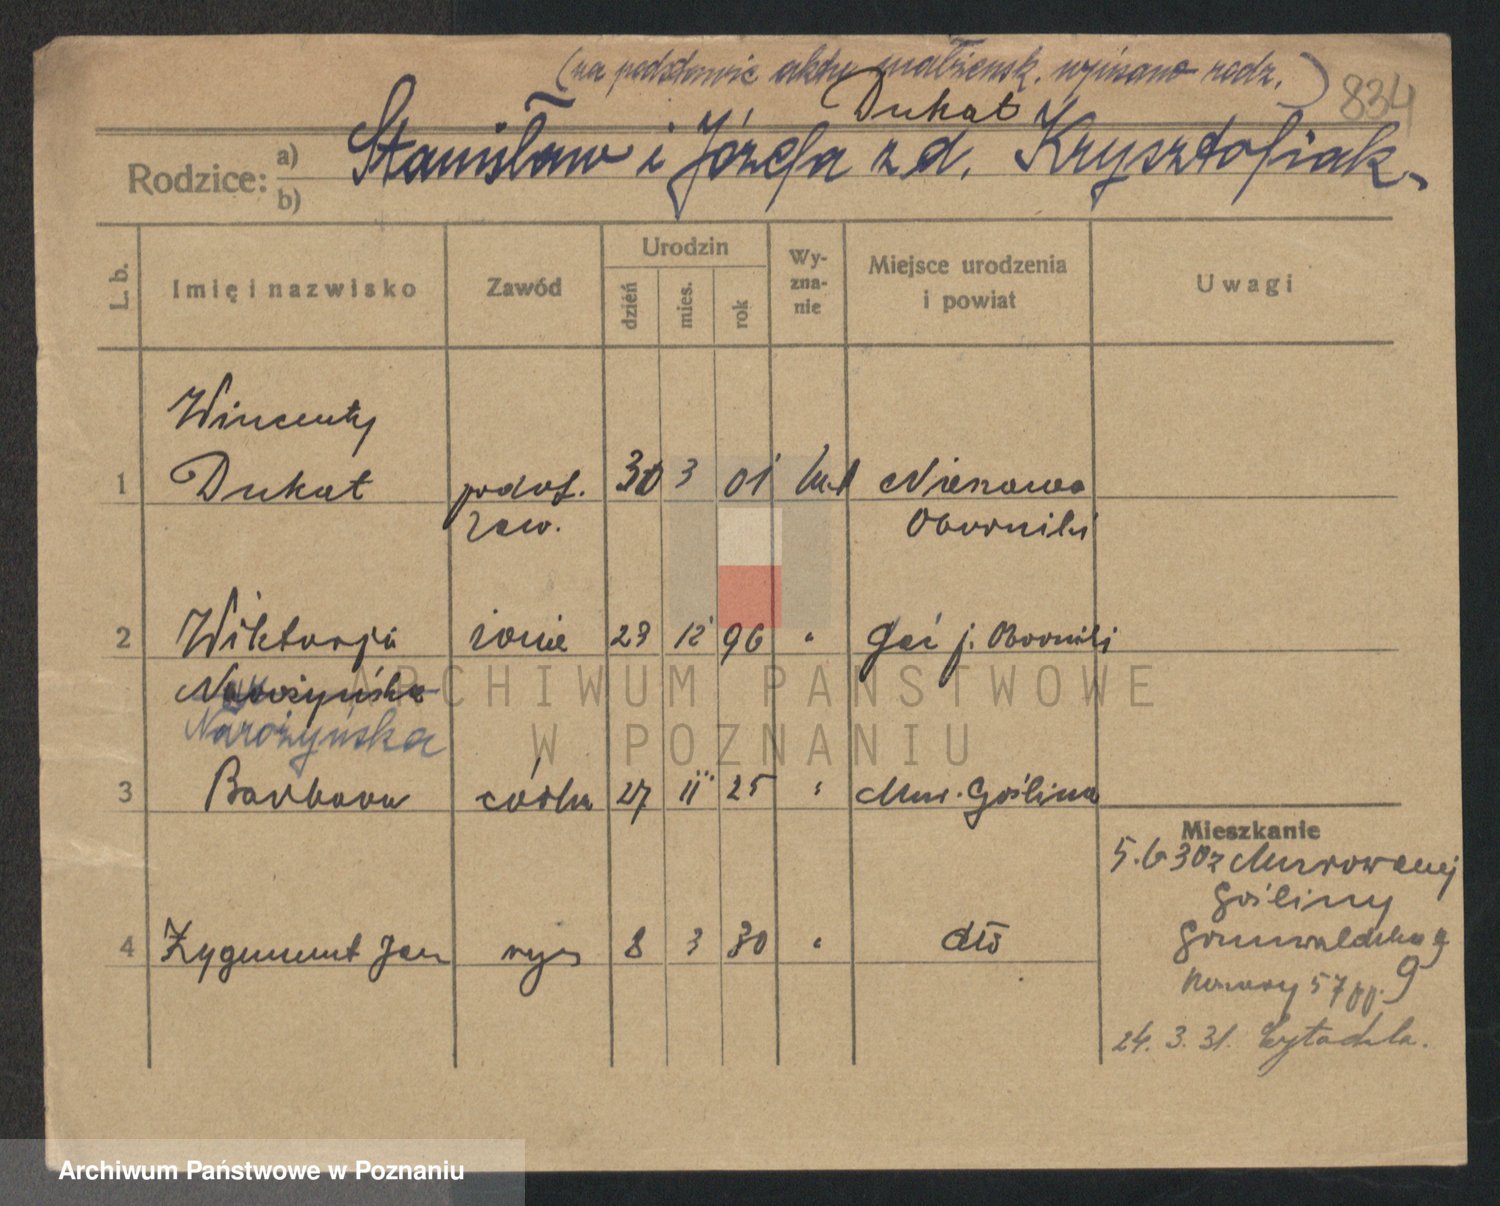 (na podstawie aktu małżeńsk. wpisano rodz.)
834
Dukat
Rodzice: a) b) Stanisław i Józefa z d. Krysztofiak.
L. b.
Imię i nazwisko
Zawód
Urodzin
dzień
mies.
rok
Wy-
zna-
nie
Miejsce urodzenia
i powiat
Uwagi
Wincenty
1 Dukat podof. 30 3 01
zaw. Oborniki
2 Wiktorja żona 23 12 96 " Oborniki
Narożyńska
Narożyńska
3 Barbara córka 27 11 25 " Mur. Goślina
Mieszkanie
5.6 30 z Murowanej
Gośliny
4 Zygmunt Jan syn 8 3 30 " dto
Grunwaldzka
57 pp. 9
24. 3. 31. Cytadela.
ARCHIWUM PAŃSTWOWE
W POZNANIU
Archiwum Państwowe w Poznaniu